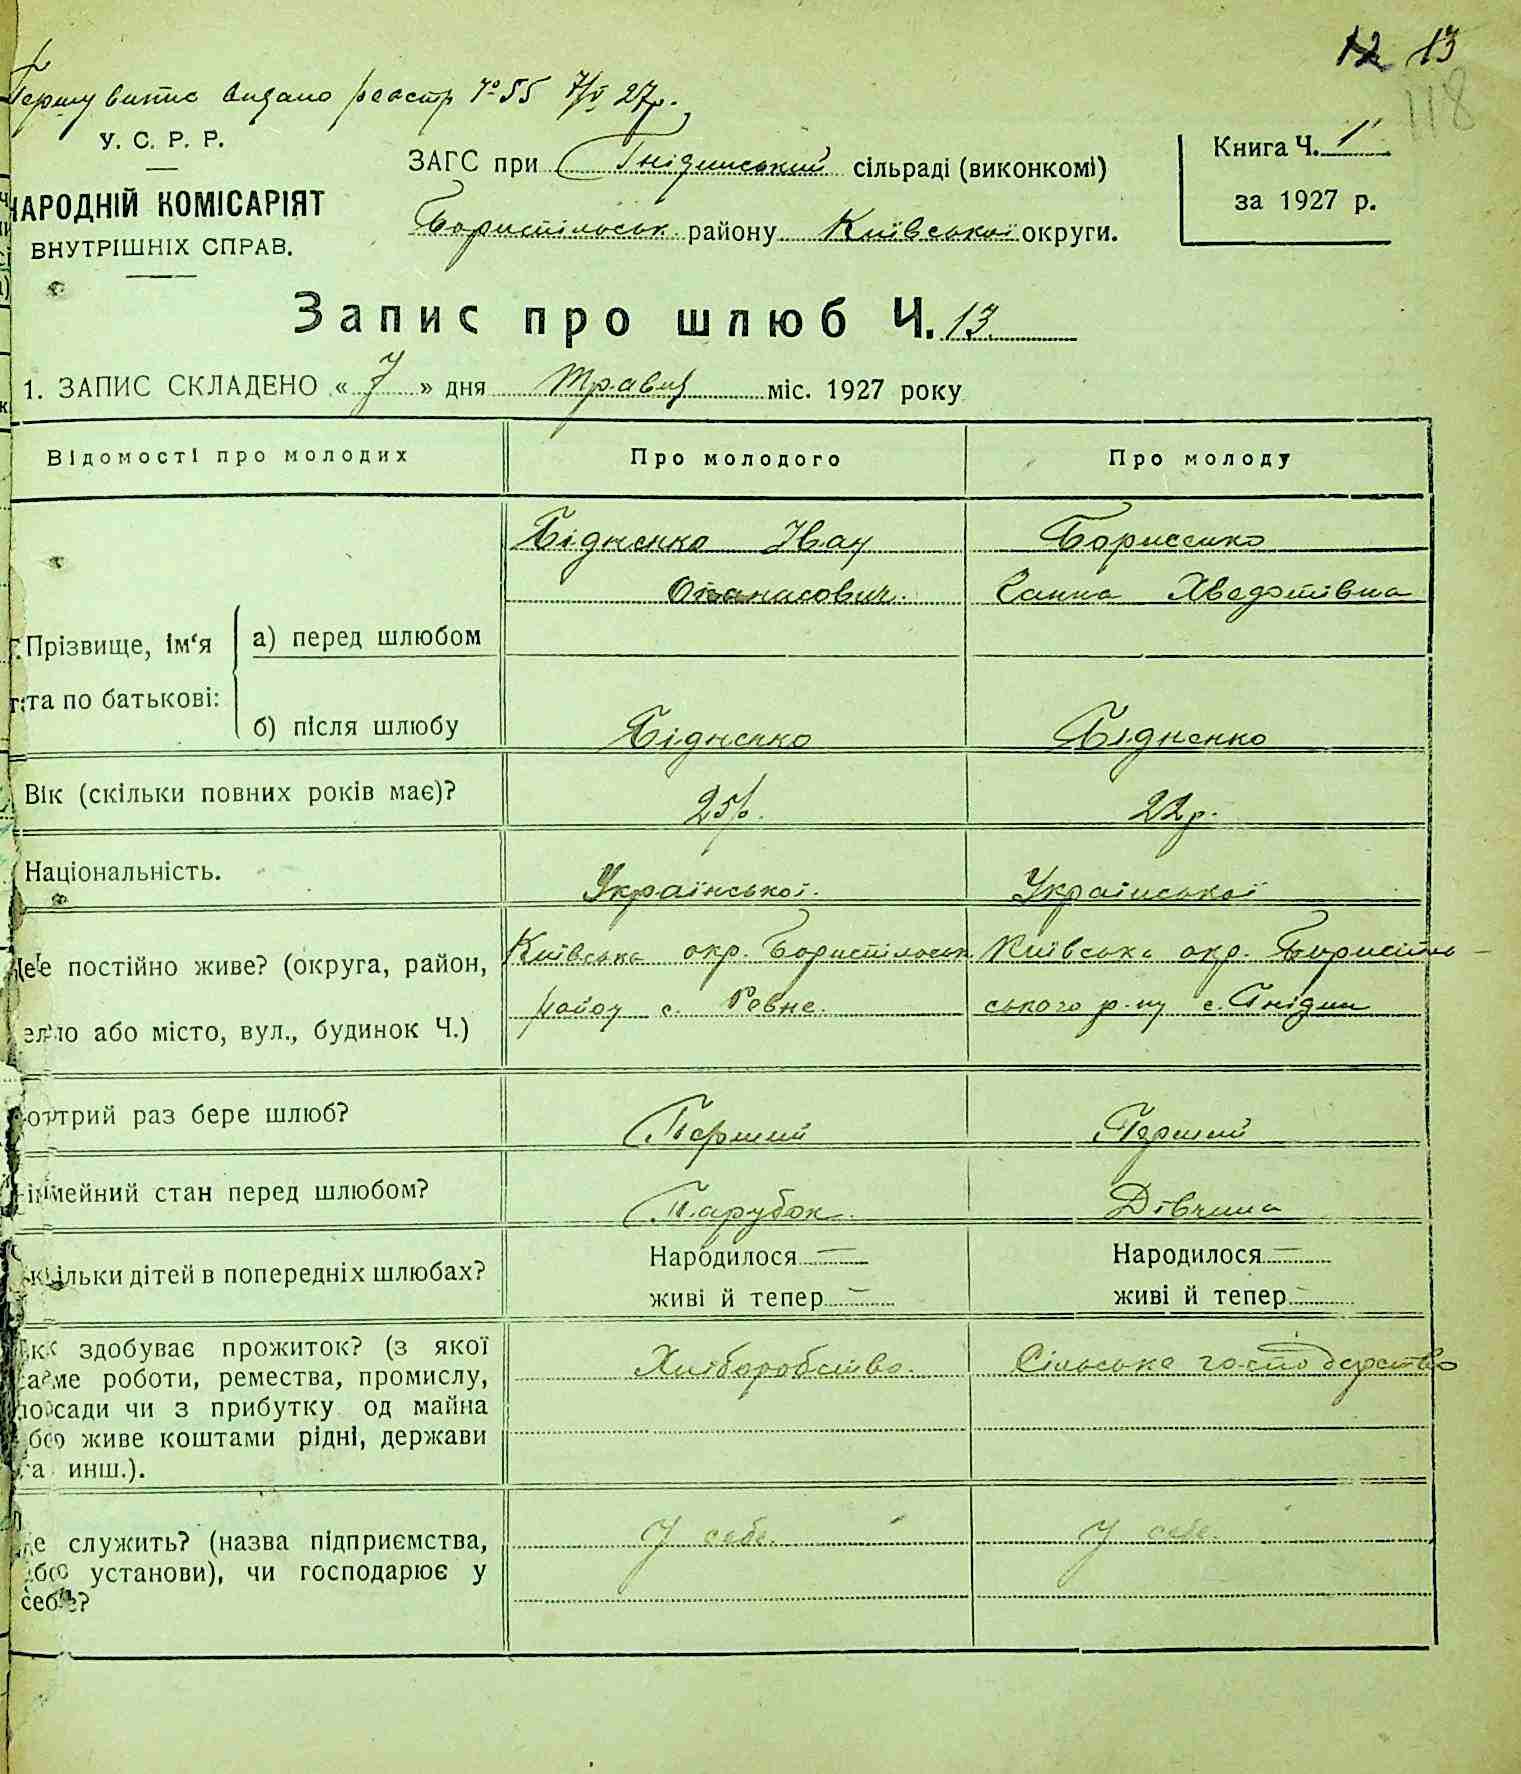 12 13
118
Першу витис видано реєстр № 55 7/V 27р.
У. С. Р. Р.
НАРОДНІЙ КОМІСАРІЯТ
ВНУТРІШНІХ СПРАВ.
ЗАГС при Гнідинський сільраді (виконкомі)
Бориспільськ. району Київської округи.
Книга Ч. 1
за 1927 р.
Запис про шлюб Ч. 13
1. ЗАПИС СКЛАДЕНО « 7 » дня Травня міс. 1927 року
Відомості про молодих Про молодого Про молоду
Бідненко Іван Борисенко
Опанасович. Ганна Хведотівна
Прізвище, ім‘я та по батькові:
а) перед шлюбом
б) після шлюбу Бідненко Бідненко
Вік (скільки повних років має)? 25р. 22р.
Національність. Української. Української
Де постійно живе? (округа, район, село або місто, вул., будинок Ч.)
Київська окр. Бориспільськ Київська окр. Бориспіль-
район с. Ревне. ського р-ну с. Гнідин
котрий раз бере шлюб? Перший Перший
сімейний стан перед шлюбом? Парубок. Дівчина
скільки дітей в попередніх шлюбах? Народилося — Народилося —
живі й тепер — живі й тепер —
Як здобуває прожиток? (з якої
саме роботи, ремества, промислу,
посади чи з прибутку од майна
або живе коштами рідні, держави
та инш.).
Хліборобство. Сільське господарство
Де служить? (назва підприємства,
або установи), чи господарює у
себе?
У себе. У себе.